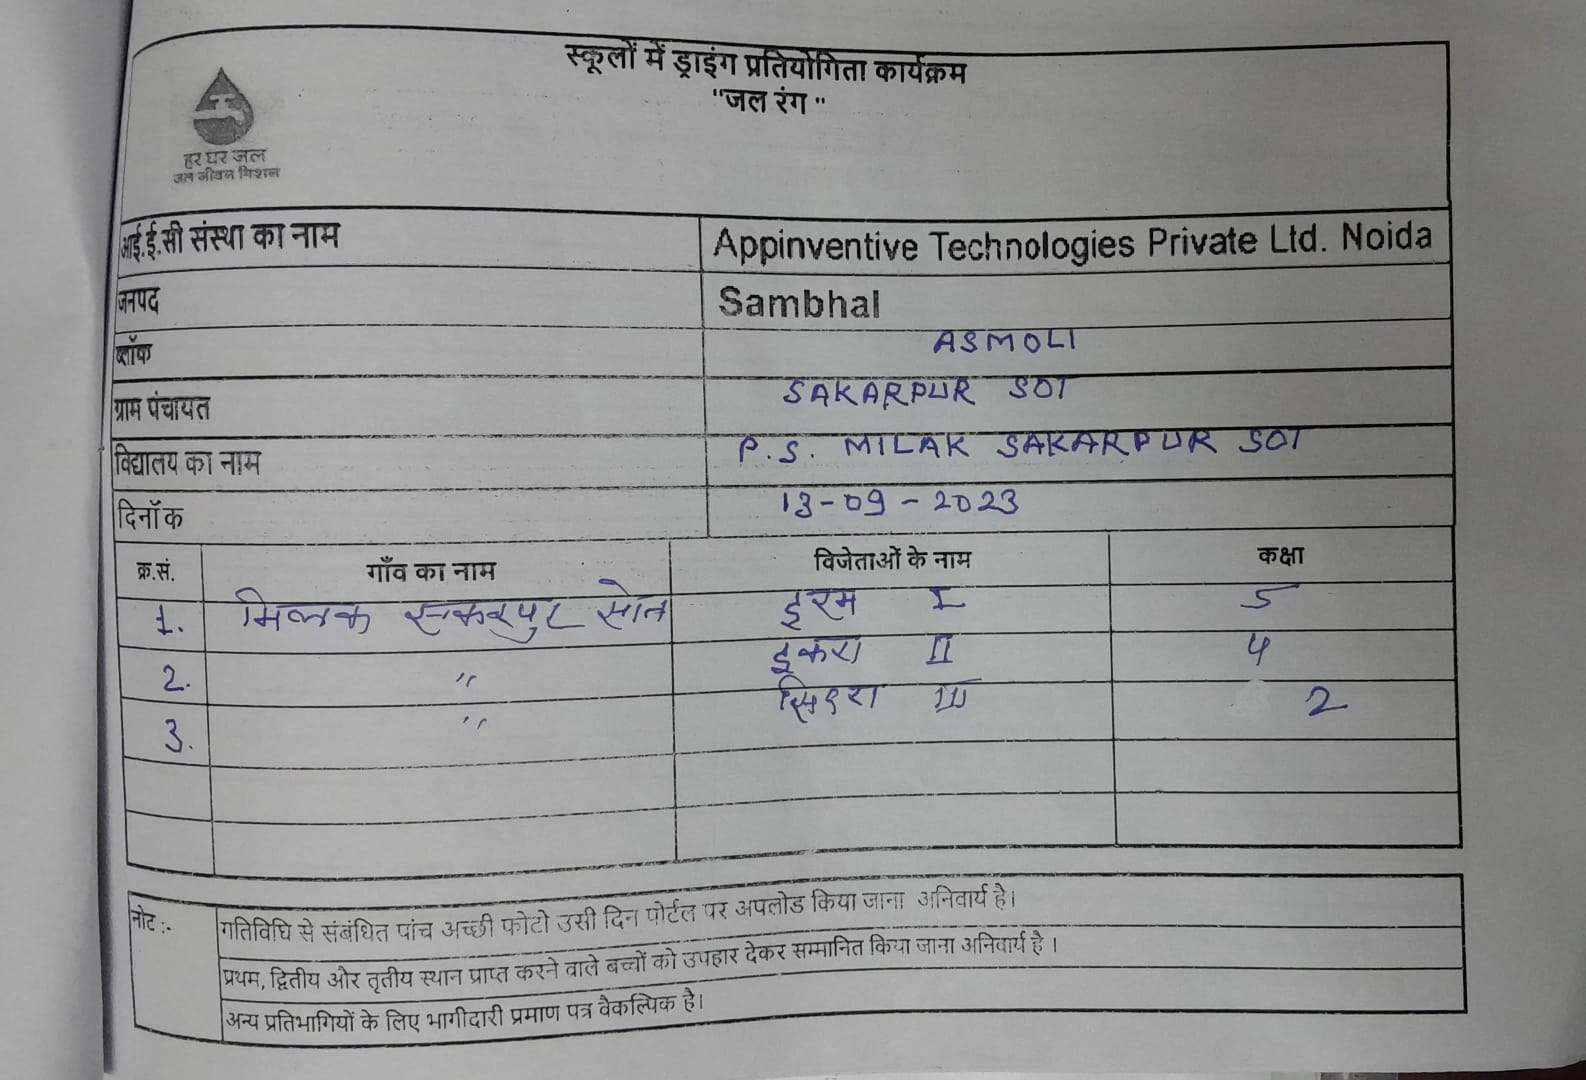 स्कूलों में ड्राइंग प्रतियोगिता कार्यक्रम
"जल रंग"
हर घर जल
जल जीवन मिशन
आई.ई.सी संस्था का नाम Appinventive Technologies Private Ltd. Noida
जनपद Sambhal
ब्लॉक ASMOLI
ग्राम पंचायत SAKARPUR SOT
विद्यालय का नाम P.S. MILAK SAKARPUR SOT
दिनॉक 13-09-2023
क्र.सं. गाँव का नाम विजेताओं के नाम कक्षा
1. मिलक सकरपुर सोत इरम I 5
2. " इकरा II 4
3. " III 2
नोट :- गतिविधि से संबंधित पांच अच्छी फोटो उसी दिन पोर्टल पर अपलोड किया जाना अनिवार्य है।
प्रथम, द्वितीय ओर तृतीय स्थान प्राप्त करने वाले बच्चों को उपहार देकर सम्मानित किया जाना अनिवार्य है।
अन्य प्रतिभागियों के लिए भागीदारी प्रमाण पत्र वैकल्पिक है।